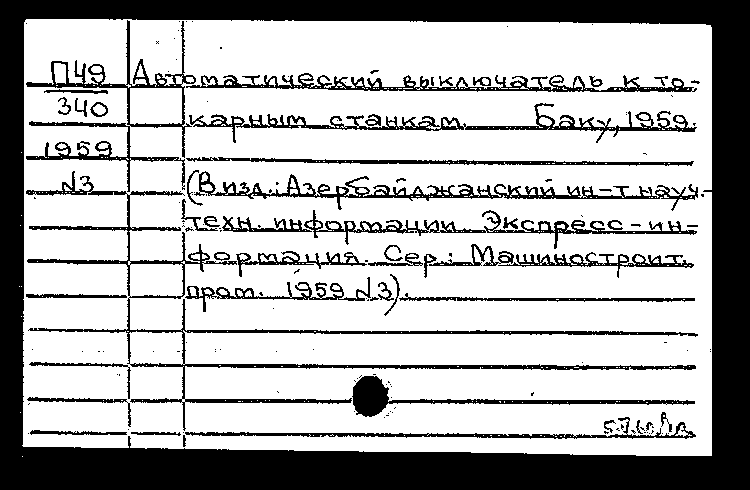 П49
340
1959
N3
Автоматический выключатель к то-
карным станкам. Баку, 1959.
(В изд.: Азербайджанский ин-т науч.-
техн. информации. Экспресс-ин-
формация. Сер.: Машиностроит.
пром. 1959 N3).